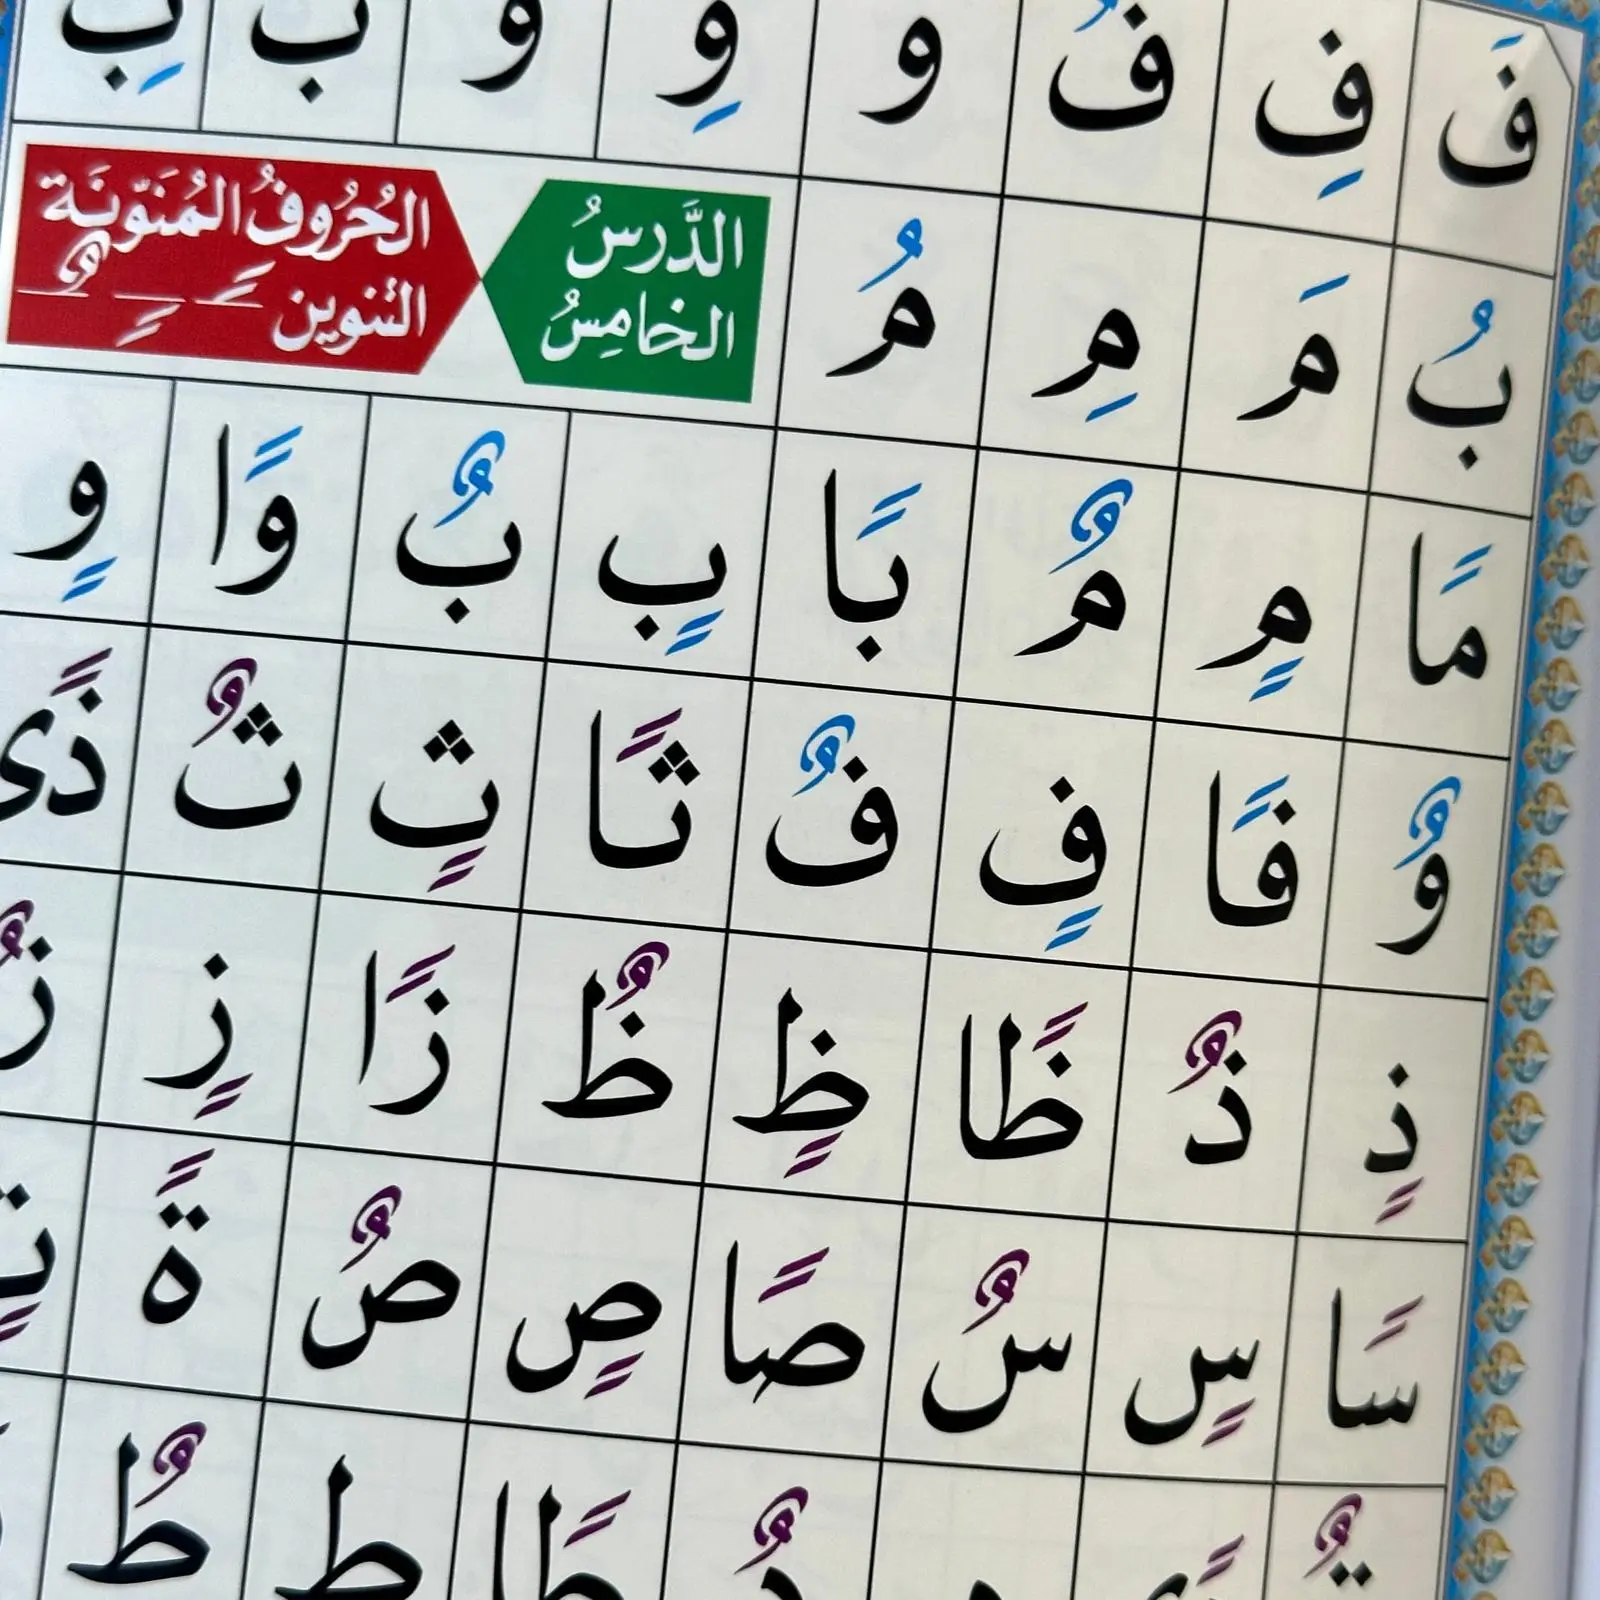 فَ فِ فُ و وِ و ب بِ
بُ مَ مِ مُ
الدَّرسُ الخامِسُ
الحُرُوفُ المُنَوَّنَة
التنوين ـً ـٍ ـٌ
مًا مٍ مٌ بًا بٍ بٌ وًا وٍ
وٌ فًا فٍ فٌ ثًا ثٍ ثٌ ذًى
ذٍ ذٌ ظًا ظٍ ظٌ زًا زٍ زٌ
سًا سٍ سٌ صًا صٍ صٌ ةً
طًا ط طٌ